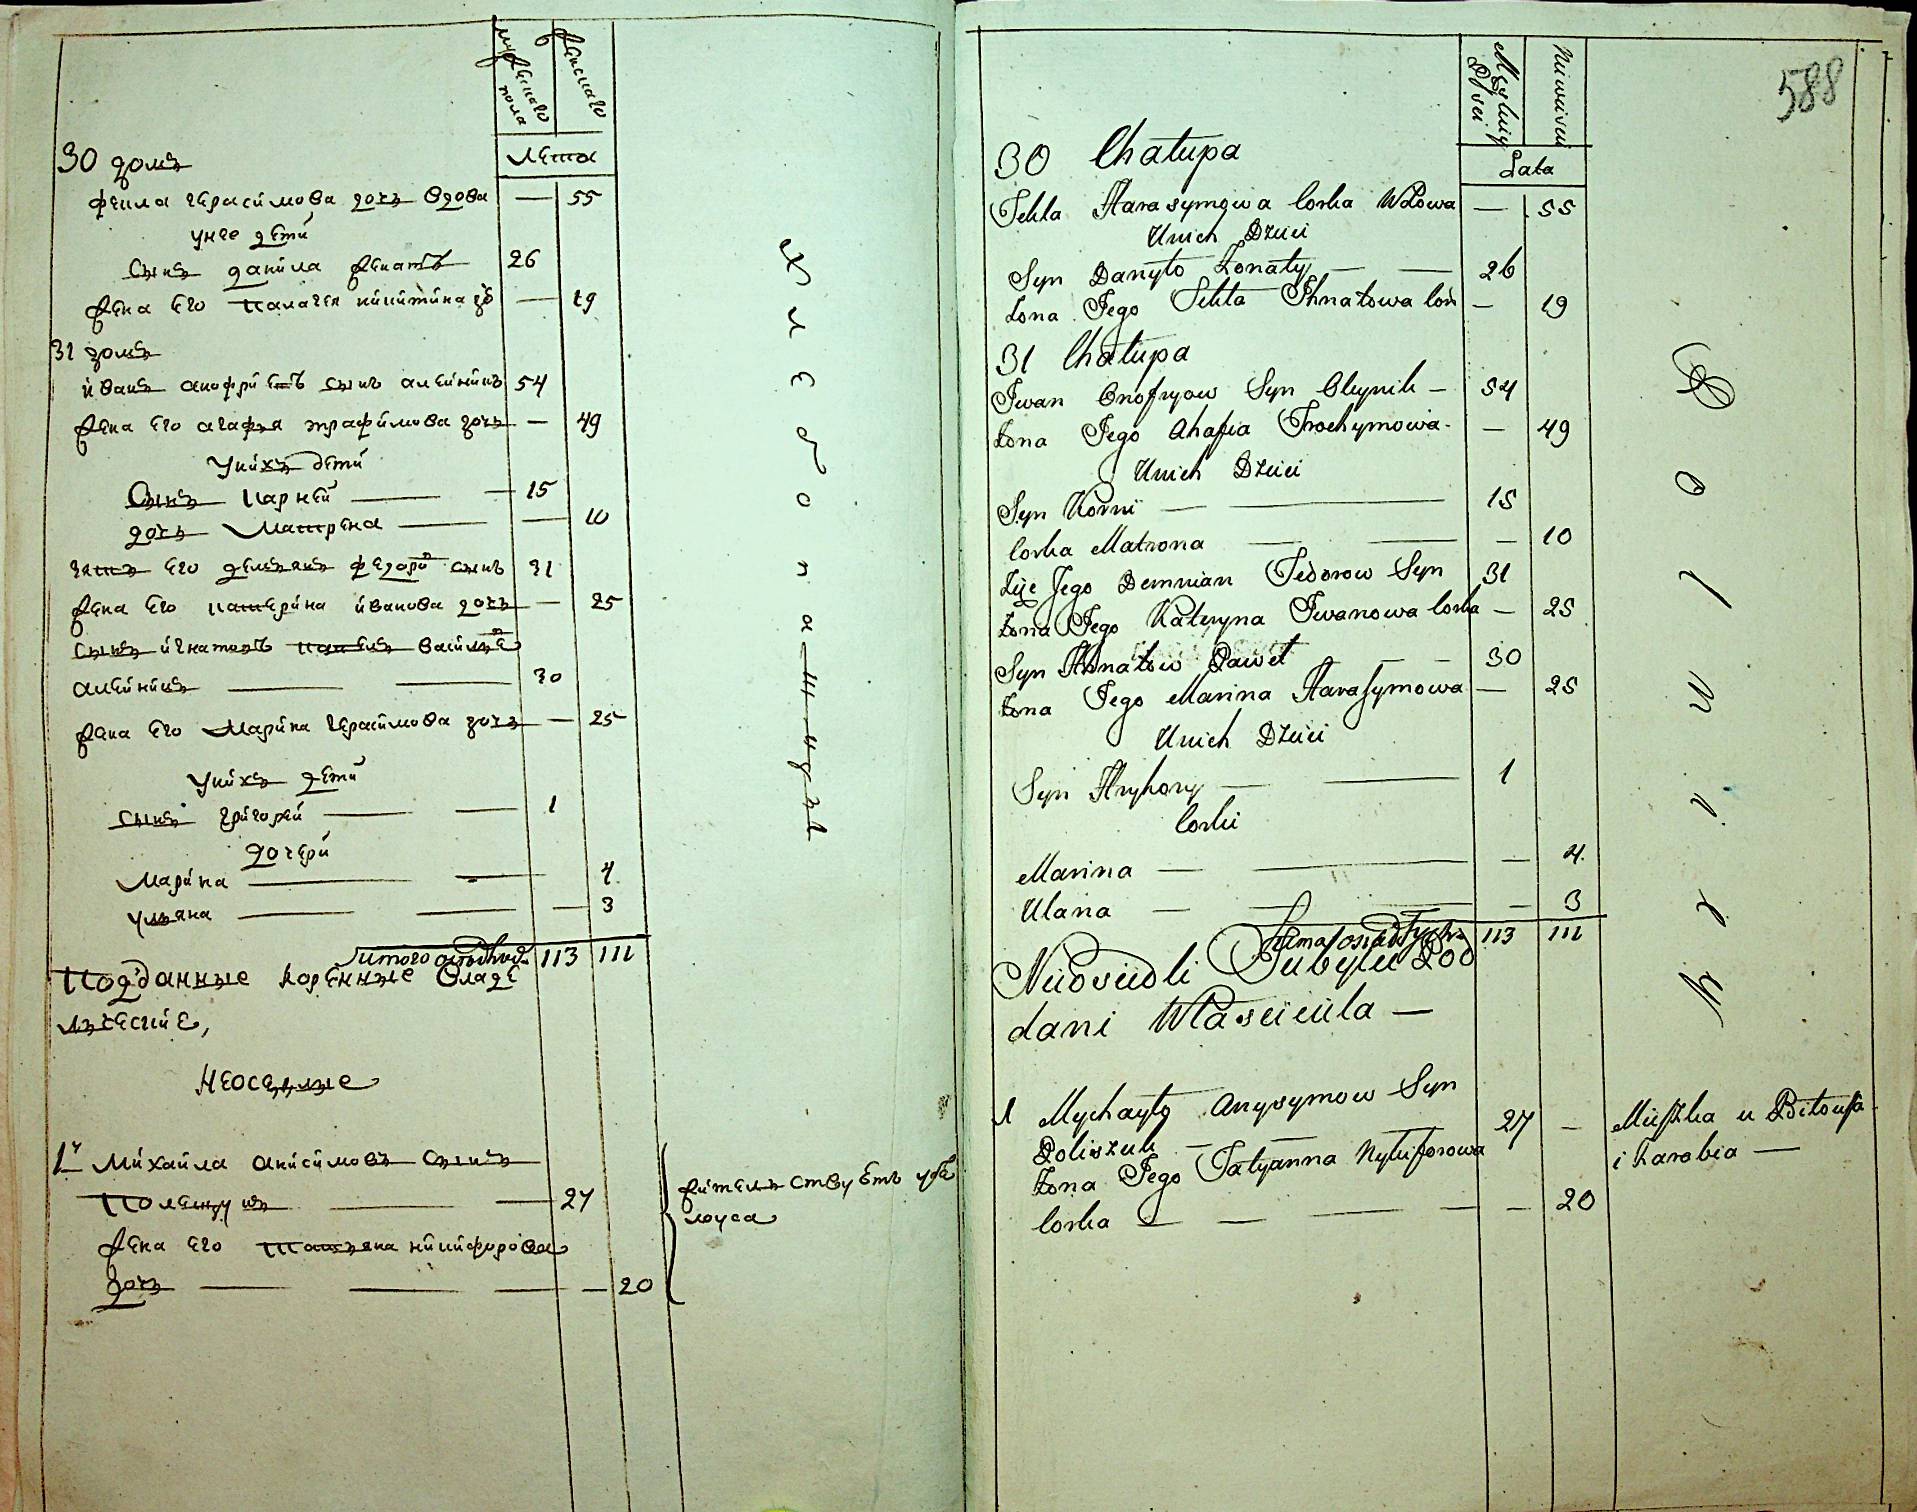 мужескаго пола
женскаго
Лета
30 домъ
Фекла герасимова дочь вдова — 55
у нее дети
сынъ данила 26
жена его Палагея никитина до — 19
31 домъ
иванъ анофриевъ сынъ алейникъ 54
жена его агафья трафимова дочь — 49
у нихъ дети
Сынъ Карней — 15
дочь Матрена — 10
зять его демьянъ федоровъ сынъ 31
жена его катерина иванова дочь — 25
сынъ игнатовъ
алейникъ — 30
жена его Марина герасимова дочь — 25
у нихъ дети
сынъ григорей — 1
дочери
Марина — 4
ульяна — 3
итого 113 111
Подданные коренные владе
льческие,
Неоселые
1й Михайла анисимовъ сынъ
Полещукъ — 27
жена его Татьяна никифорова
дочь — 20
жительствуетъ у
хлебопашцы
588
Męskiey Płci
Niewieściej
Lata
30 Chałupa
Tekla Harasymowa Corka Wdowa — 55
U nich Dzieci
Syn Danyło — 26
Żona Jego Tekla Ihnatowa Cor — 19
31 Chałupa
Iwan Onofryow Syn Oleynik — 54
Żona Jego Ahafia Trochymowa — 49
U nich Dzieci
Syn Korni — 15
Corka Matrona — 10
Zięć Jego Demnian Fedorow Syn 31
Żona Jego Kateryna Iwanowa Corka — 25
Syn Ihnatow Paweł — 30
Żona Jego Marina Harasymowa — 25
U nich Dzieci
Syn Hryhory — 1
Corki
Marina — 4
Ulana — 3
Summa osiadłych 113 111
Nieosiedli Pod
dani Własciciela —
1 Mychayło Anysymow Syn
Poliszuk — 27 —
Żona Jego Tatyanna Nykiforowa
Corka — 20
Mieszka u
i Zarabia —
Rolnicy